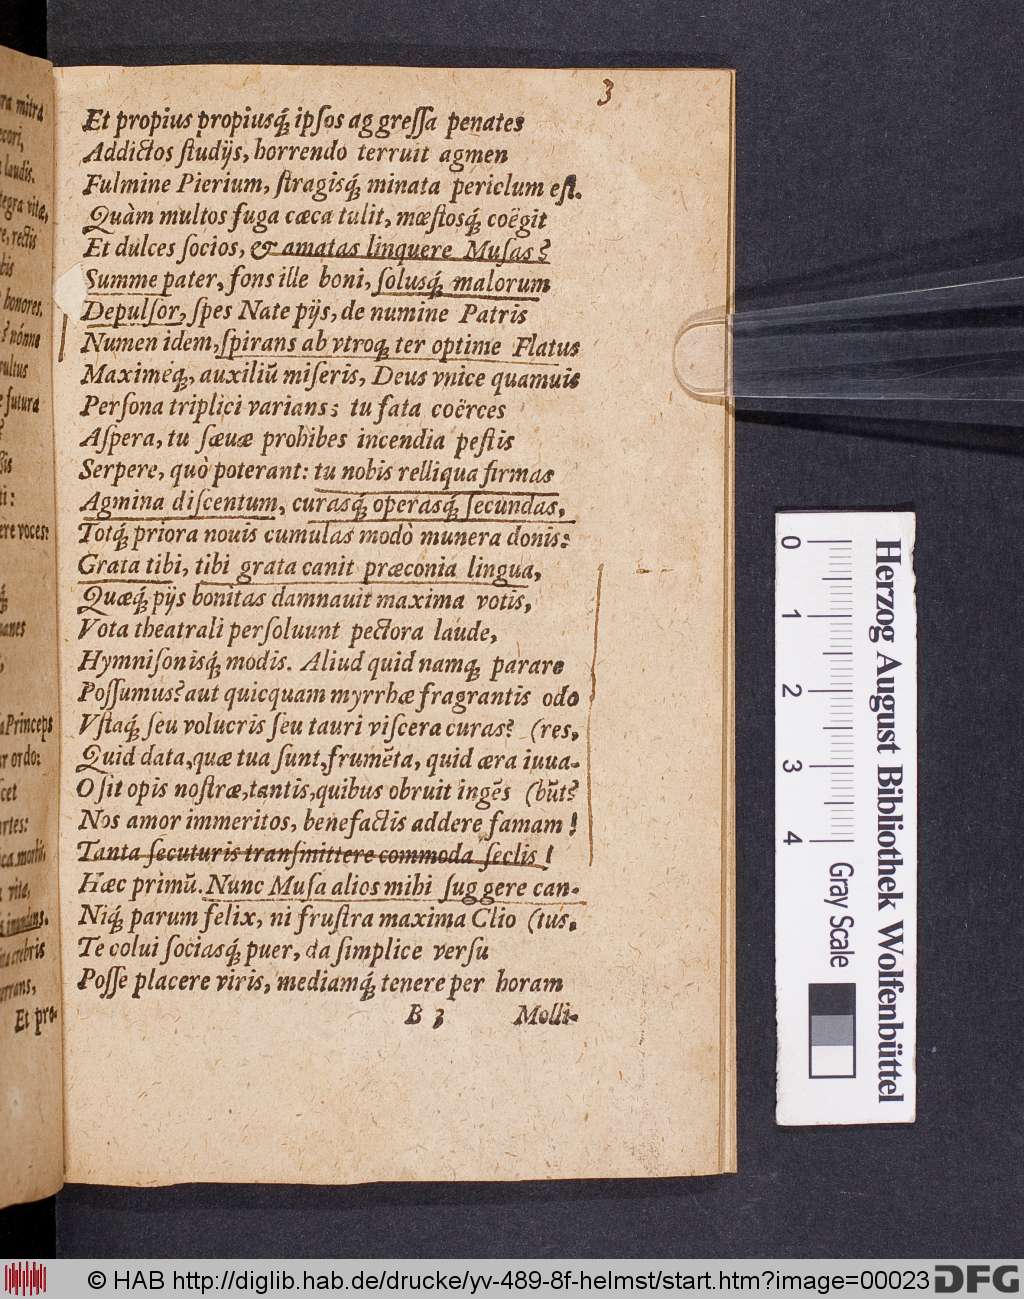 3
Et propius propiusq́; ipſos aggreſſa penates
Addictos ſtudijs, horrendo terruit agmen
Fulmine Pierium, ſtragisq́; minata periclum eſt.
Quàm multos fuga cæca tulit, mæſtosq́; coëgit
Et dulces ſocios, & amatas linquere Muſas?
Summe pater, fons ille boni, ſolusq́; malorum
Depulſor, ſpes Nate pijs, de numine Patris
Numen idem, ſpirans ab vtroq; ter optime Flatus
Maximeq́;, auxiliū miſeris, Deus vnice quamuis
Perſona triplici varians; tu fata coërces
Aſpera, tu ſæuæ prohibes incendia peſtis
Serpere, quò poterant: tu nobis relliqua firmas
Agmina diſcentum, curasq́; operasq́; ſecundas,
Totq́; priora nouis cumulas modò munera donis:
Grata tibi, tibi grata canit præconia lingua,
Quæq́; pijs bonitas damnauit maxima votis,
Vota theatrali perſoluunt pectora laude,
Hymniſonisq́; modis. Aliud quid namq; parare
Poſſumus? aut quicquam myrrhæ fragrantis odo
Vſtaq́; ſeu volucris ſeu tauri viſcera curas? (res,
Quid data, quæ tua ſunt, frumēta, quid æra iuua-
O ſit opis noſtræ, tantis, quibus obruit ingēs (būt?
Nos amor immeritos, benefactis addere famam!
Tanta ſecuturis tranſmittere commoda ſeclis!
Hæc primū. Nunc Muſa alios mihi ſuggere can-
Niq́; parum felix, ni fruſtra maxima Clio (tus,
Te colui ſociasq́; puer, da ſimplice verſu
Poſſe placere viris, mediamq́; tenere per horam
B 3 Molli-
ra mitra
ecori,
laudis.
tegra vitæ,
re, rectis
honores.
? nónne
vultus
e futura
ere voces?
a Princeps
ordo:
artes:
vita,
crebris
errans,
Et pro-
0 1 2 3 4
Gray Scale
Herzog August Bibliothek Wolfenbüttel
© HAB http://diglib.hab.de/drucke/yv-489-8f-helmst/start.htm?image=00023
DFG